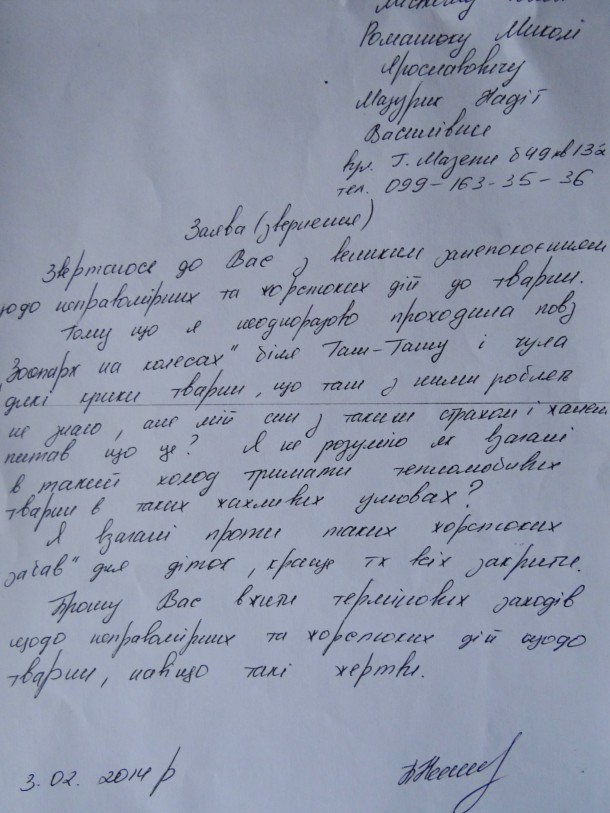 Ромашоку Миколі
Ярославовичу
Мазурик Надії
Василівни
вул. І. Мазепи б 49 кв 132
тел. 099-163-35-36
Заява (звернення)
Звертаюсь до Вас з великим занепокоєнням
щодо неправомірних та жорстоких дій до тварин.
Тому що я неодноразово проходила повз
„Зоопарк на колесах" біля Там-Таму і чула
дикі крики тварин, що там з ними роблять
не знаю, але мій син з таким страхом і жахом
питав що це? Я не розумію як взагалі
в такий холод тримати теплолюбивих
тварин в таких жахливих умовах?
Я взагалі проти таких жорстоких
забав" для діток, краще їх всіх закрити.
Прошу Вас вжити термінових заходів
щодо неправомірних та жорстоких дій щодо
тварин, навіщо такі жертви.
3.02.2014 р